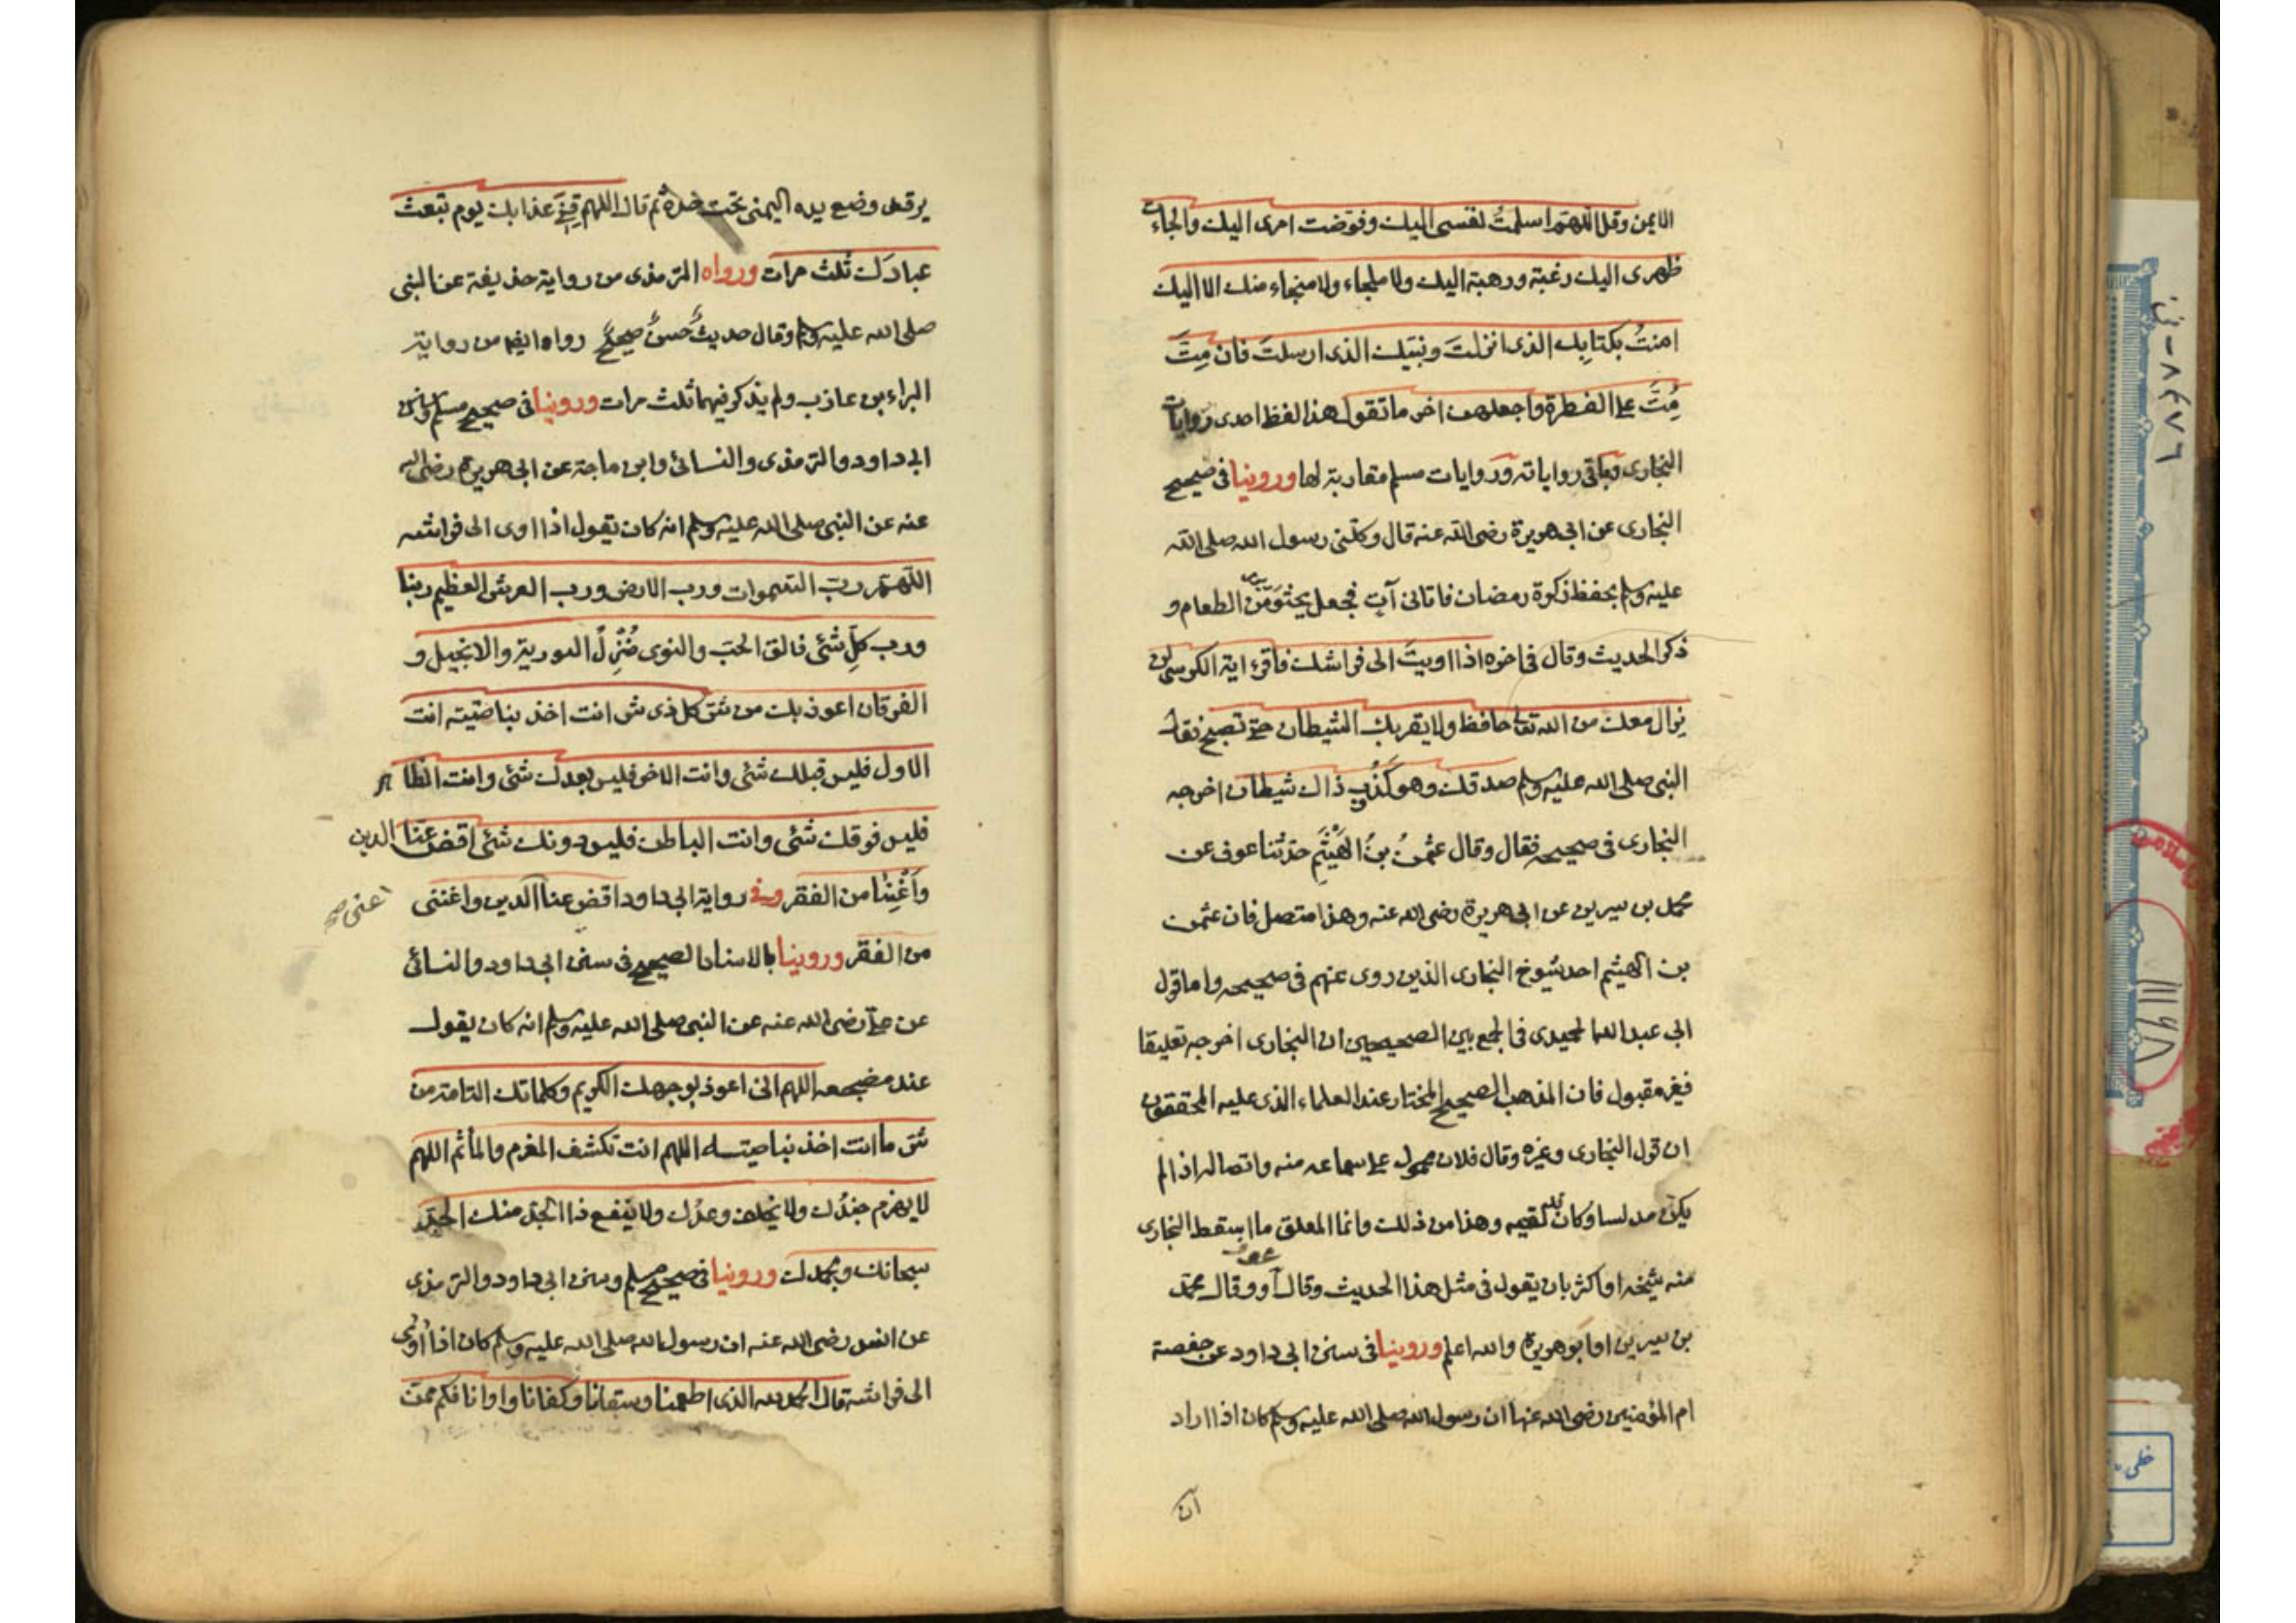 الايمن وقل اللهم اسلمتُ نفسى اليك وفوّضت امرى اليك والجاءت
ظهرى اليك رغبة ورهبة اليك ولا ملجاء ولا منجاء منك الا اليك
امنتُ بكتابِك الذى انزلتَ ونبيّك الذى ارسلتَ فان مِتَّ
مُتَّ على الفطرة واجعلهن اخر ما تقول هذا لفظ احدى روايات
البخارى وباقى رواياته وروايات مسلم مقاربة لها وروينا فى صحيح
البخارى عن ابى هريرة رضى الله عنه قال وكلنى رسول الله صلى الله
عليه وسلم بحفظ زكوة رمضان فاتانى آتٍ فجعل يحثو من الطعام و
ذكر الحديث وقال فى اخره اذا اويتَ الى فراشك فاقرء اية الكرسى لن
يزال معك من الله تعالى حافظ ولا يقربك الشيطان حتى تصبح فقال
النبى صلى الله عليه وسلم صدقك وهو كذوب ذاك شيطان اخرجه
البخارى فى صحيحه فقال وقال عثمنُ بنُ الهَيْثَم حدثنا عوف عن
محمد بن سيرين عن ابى هريرة رضى الله عنه وهذا متصل فان عثمن
بن الهيثم احد شيوخ البخارى الذين روى عنهم فى صحيحه واما قول
ابى عبد الله الحميدى فى الجمع بين الصحيحين ان البخارى اخرجه تعليقا
فغير مقبول فان المذهب الصحيح المختار عند العلماء الذى عليه المحققون
ان قول البخارى وغيره وقال فلان محمول على سماعه منه واتصاله اذا لم
يكن مدلسا وكان قد لقيه وهذا من ذلك وانما المعلق ما اسقط البخارى
منه شيخه او اكثر بان يقول فى مثل هذا الحديث وقال عوف او وقال محمد
بن سيرين او ابو هريرة والله اعلم وروينا فى سنن ابى داود عن حفصة
ام المؤمنين رضى الله عنها ان رسول الله صلى الله عليه وسلم كان اذا اراد
ان
يرقد وضع يده اليمنى تحت خده ثم قال اللهم قِنِى عذابك يوم تبعث
عبادك ثلث مرات ورواه الترمذى من رواية حذيفة عن النبى
صلى الله عليه وسلم وقال حديثٌ حسنٌ صحيحٌ رواه ايضا من رواية
البراء بن عازب ولم يذكر فيهما ثلث مرات وروينا فى صحيح مسلم وسنن
ابى داود والترمذى والنسائى وابن ماجة عن ابى هريرة رضى الله
عنه عن النبى صلى الله عليه وسلم انه كان يقول اذا اوى الى فراشه
اللهم ربّ السموات ورب الارض ورب العرش العظيم ربنا
ورب كلِّ شئى فالق الحبّ والنوى مُنْزِلَ التورية والانجيل و
الفرقان اعوذ بك من شر كل ذى شر انت اخذ بناصيته انت
الاول فليس قبلك شئى وانت الاخر فليس بعدك شئى وانت الظاهر
فليس فوقك شئى وانت الباطن فليس دونك شئى اقض عنّا الدين
وأغْنِنا من الفقر وفى رواية ابى داود اقض عنا الدين واغننى
اعنى صح
من الفقر وروينا بالاسناد الصحيح فى سنن ابى داود والنسائى
عن على رضى الله عنه عن النبى صلى الله عليه وسلم انه كان يقول
عند مضجعه اللهم انى اعوذ بوجهك الكريم وكلماتك التامة من
شر ما انت اخذ بناصيته اللهم انت تكشف المغرم والمأثم اللهم
لا يهزم جندُك ولا يخلف وعدُك ولا ينفع ذا الجدّ منك الجدّ
سبحانك وبحمدك وروينا فى صحيح مسلم وسنن ابى داود والترمذى
عن انس رضى الله عنه ان رسول الله صلى الله عليه وسلم كان اذا أوى
الى فراشه قال الحمد لله الذى اطعمنا وسقانا وكفانا واوانا فكم ممن
٦٨٤٧٦
خطى